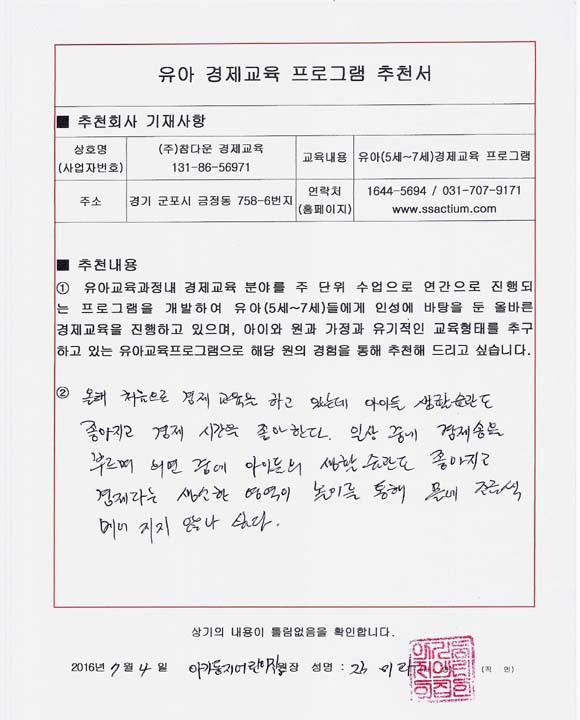 유아 경제교육 프로그램 추천서
■ 추천회사 기재사항
상호명
(사업자번호)
(주)참다운 경제교육
131-86-56971
교육내용
유아(5세~7세)경제교육 프로그램
주소
경기 군포시 금정동 758-6번지
연락처
(홈페이지)
1644-5694 / 031-707-9171
www.ssactium.com
■ 추천내용
① 유아교육과정내 경제교육 분야를 주 단위 수업으로 연간으로 진행되
는 프로그램을 개발하여 유아(5세~7세)들에게 인성에 바탕을 둔 올바른
경제교육을 진행하고 있으며, 아이와 원과 가정과 유기적인 교육형태를 추구
하고 있는 유아교육프로그램으로 해당 원의 경험을 통해 추천해 드리고 싶습니다.
② 올해 처음으로 경제 교육을 하고 있는데 아이들 생활습관도
좋아지고 경제 시간을 좋아한다. 일상 중에 경제송을
부르며 아이들의 생활 습관도 좋아지고
경제라는 생소한 영역이 놀이를 통해 몸에 조금씩
베어 지지 않나 싶다.
상기의 내용이 틀림없음을 확인합니다.
2016년 7월 4일 어린이집 원장 성명 : (직 인)